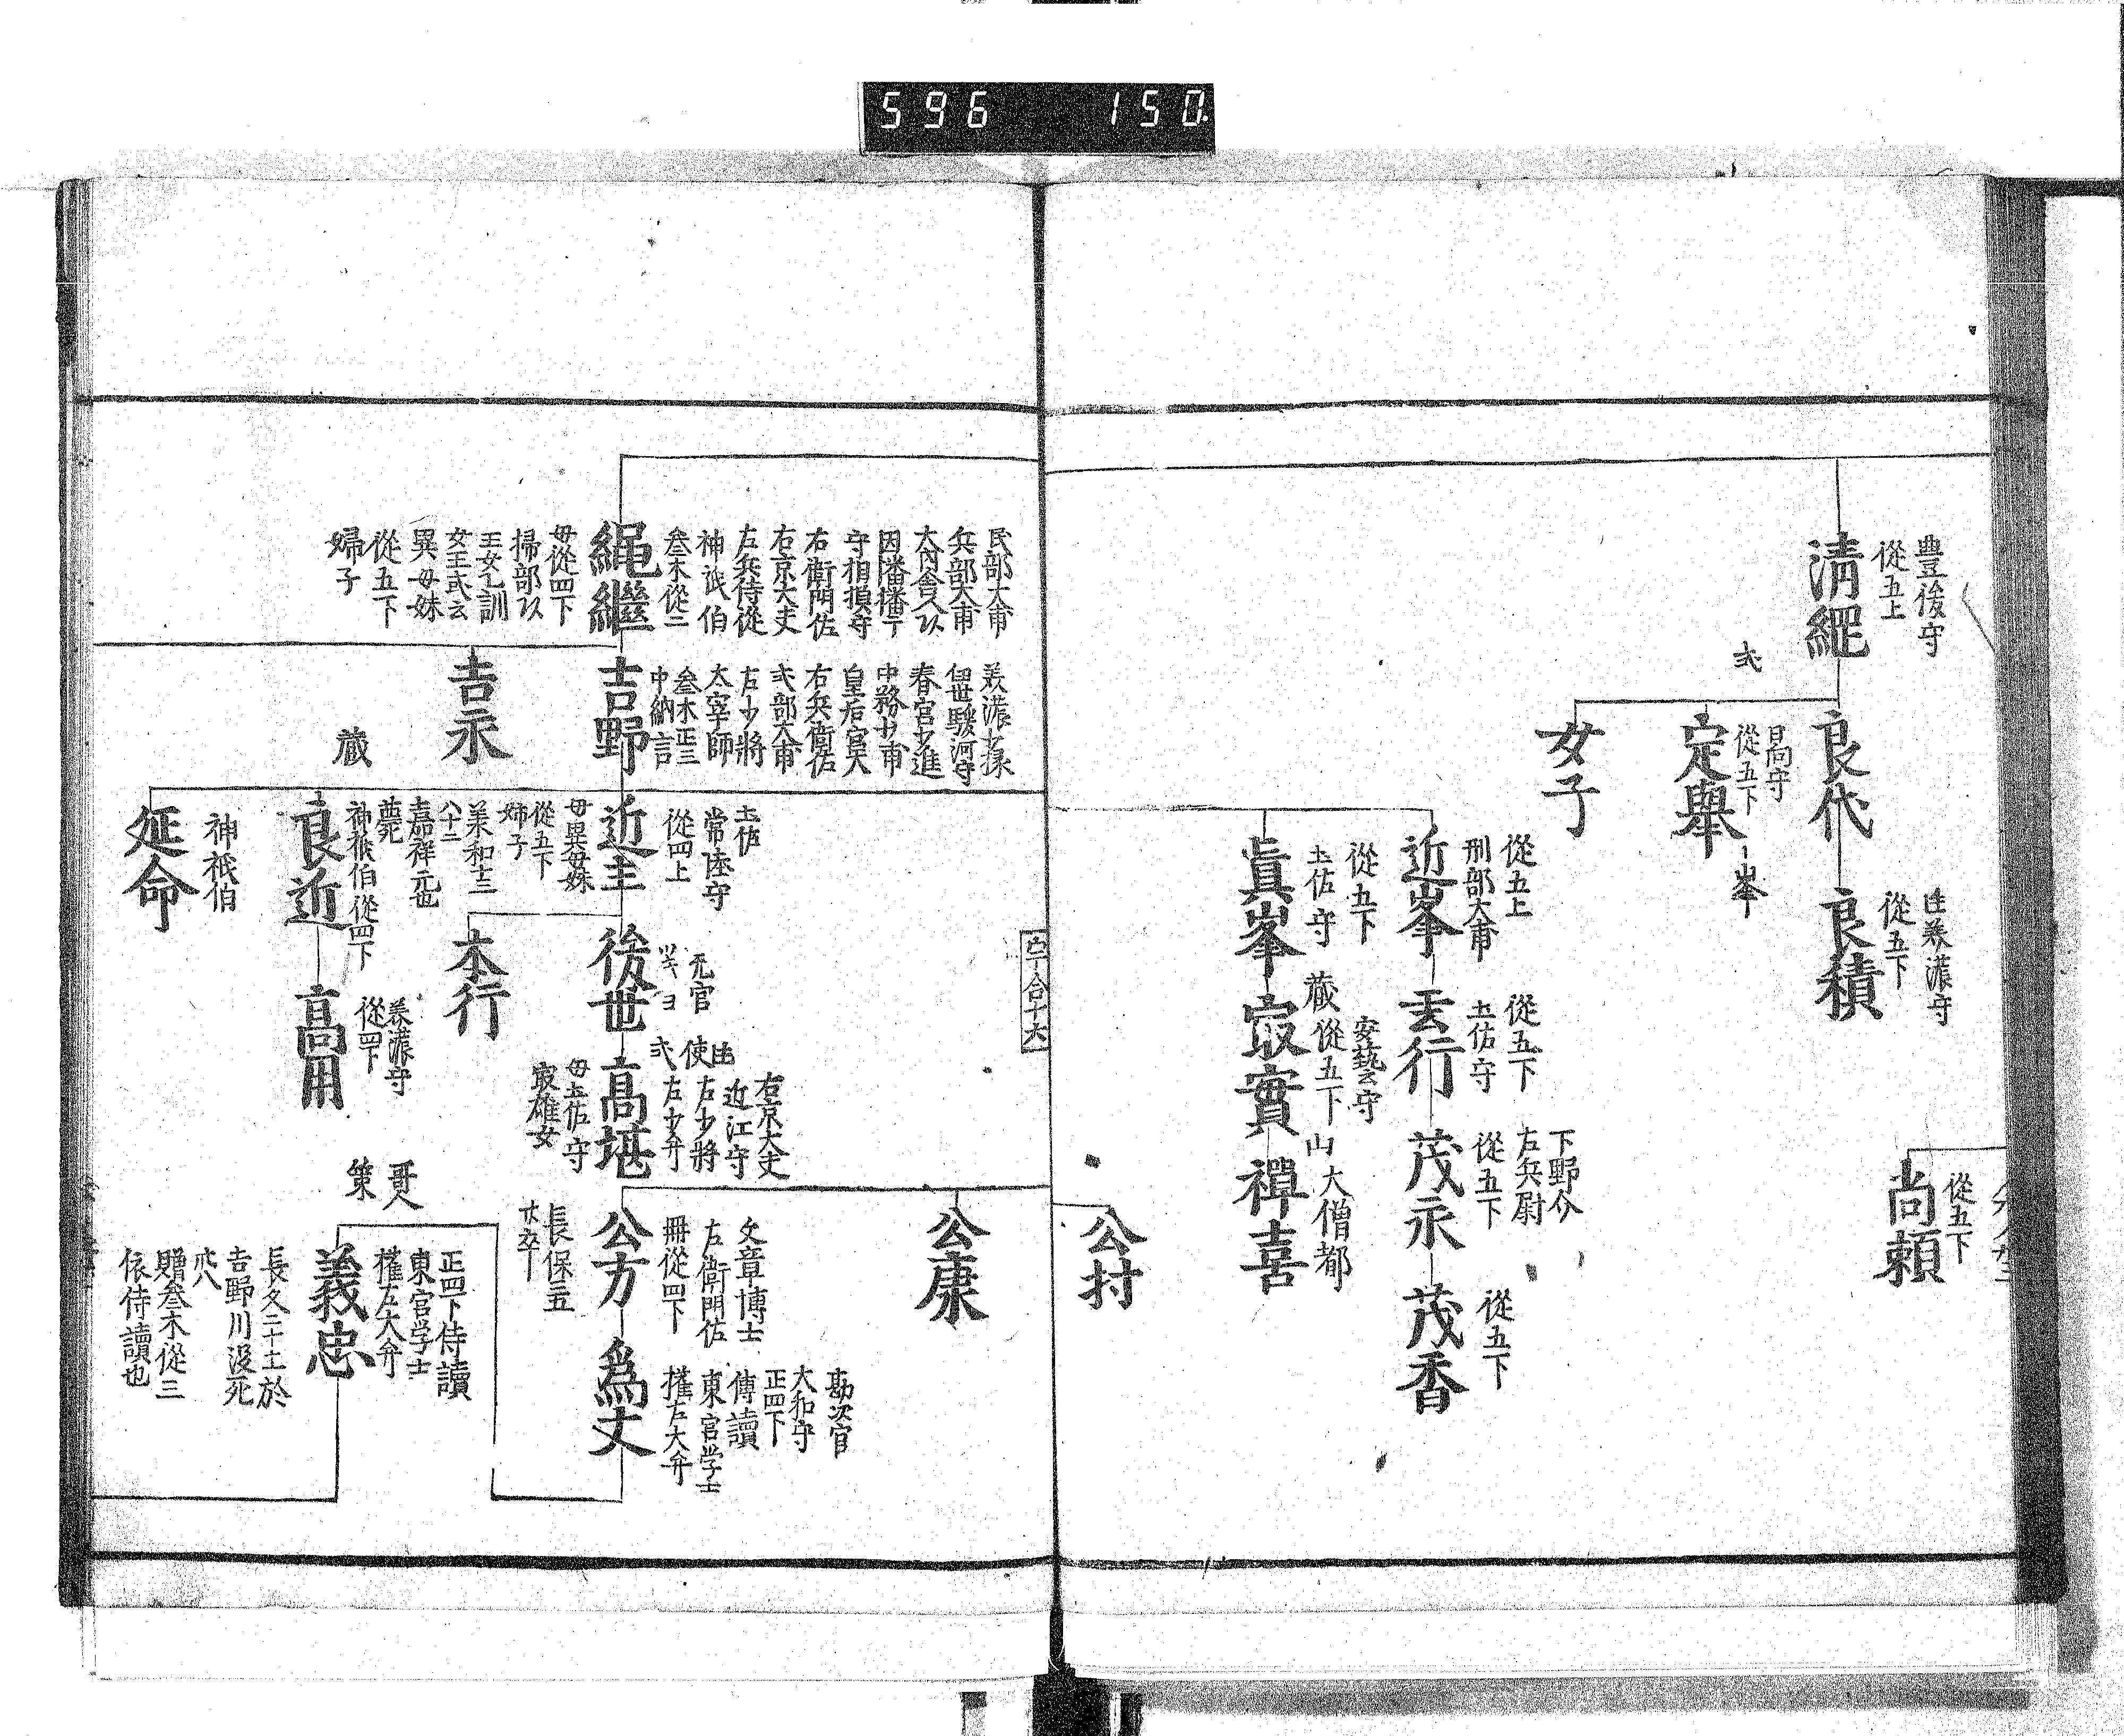 596 150
豊後守
從五上
清繩
弍
良代
日向守
從五下
定舉
峯
女子
美濃守
從五下
良積
從五下
尚頼
從五上
刑部大甫
近峯
從五下
土佐守
眞峯
從五下
土佐守
云行
藏
安藝守
從五下
㝡實
下野介
左兵尉
從五下
茂永
山
大僧都
禅喜
從五下
茂香
公村
民部大甫
兵部大甫
大內舎人以
因幡播丁
守相損守
右衛門佐
右京大夫
左兵侍從
神祇伯
叄木從二
繩繼
母從四下
掃部以
王女乙訓
女王或云
異母妹
從五下
婦子
美濃少掾
伊世駿河守
春宮少進
中務少甫
皇后宮大
右兵衛佐
式部大甫
左少將
太宰師
叄木正三
中納言
吉野
吉永
藏
土佐
常陸守
從四上
近主
母異母妹
從五下
姉子
美和士三
八十二
嘉祥元也
薨死
神祇伯從四下
良近
神祇伯
延命
无官
後世
本行
美濃守
從四下
高用
使
弍
右京大夫
近江守
左少將
左少弁
高堪
母土佐守
㝡雄女
公康
文章博士
左衛門佐
冊從四下
公方
長保三五
廿卒
勘次官
大和守
正四下
傳讀
東宮学士
權左大弁
爲文
哥人
策
正四下侍讀
東宮学士
權左大弁
義忠
長久二十十一於
吉野川没死
贈叄木從三
依侍讀也